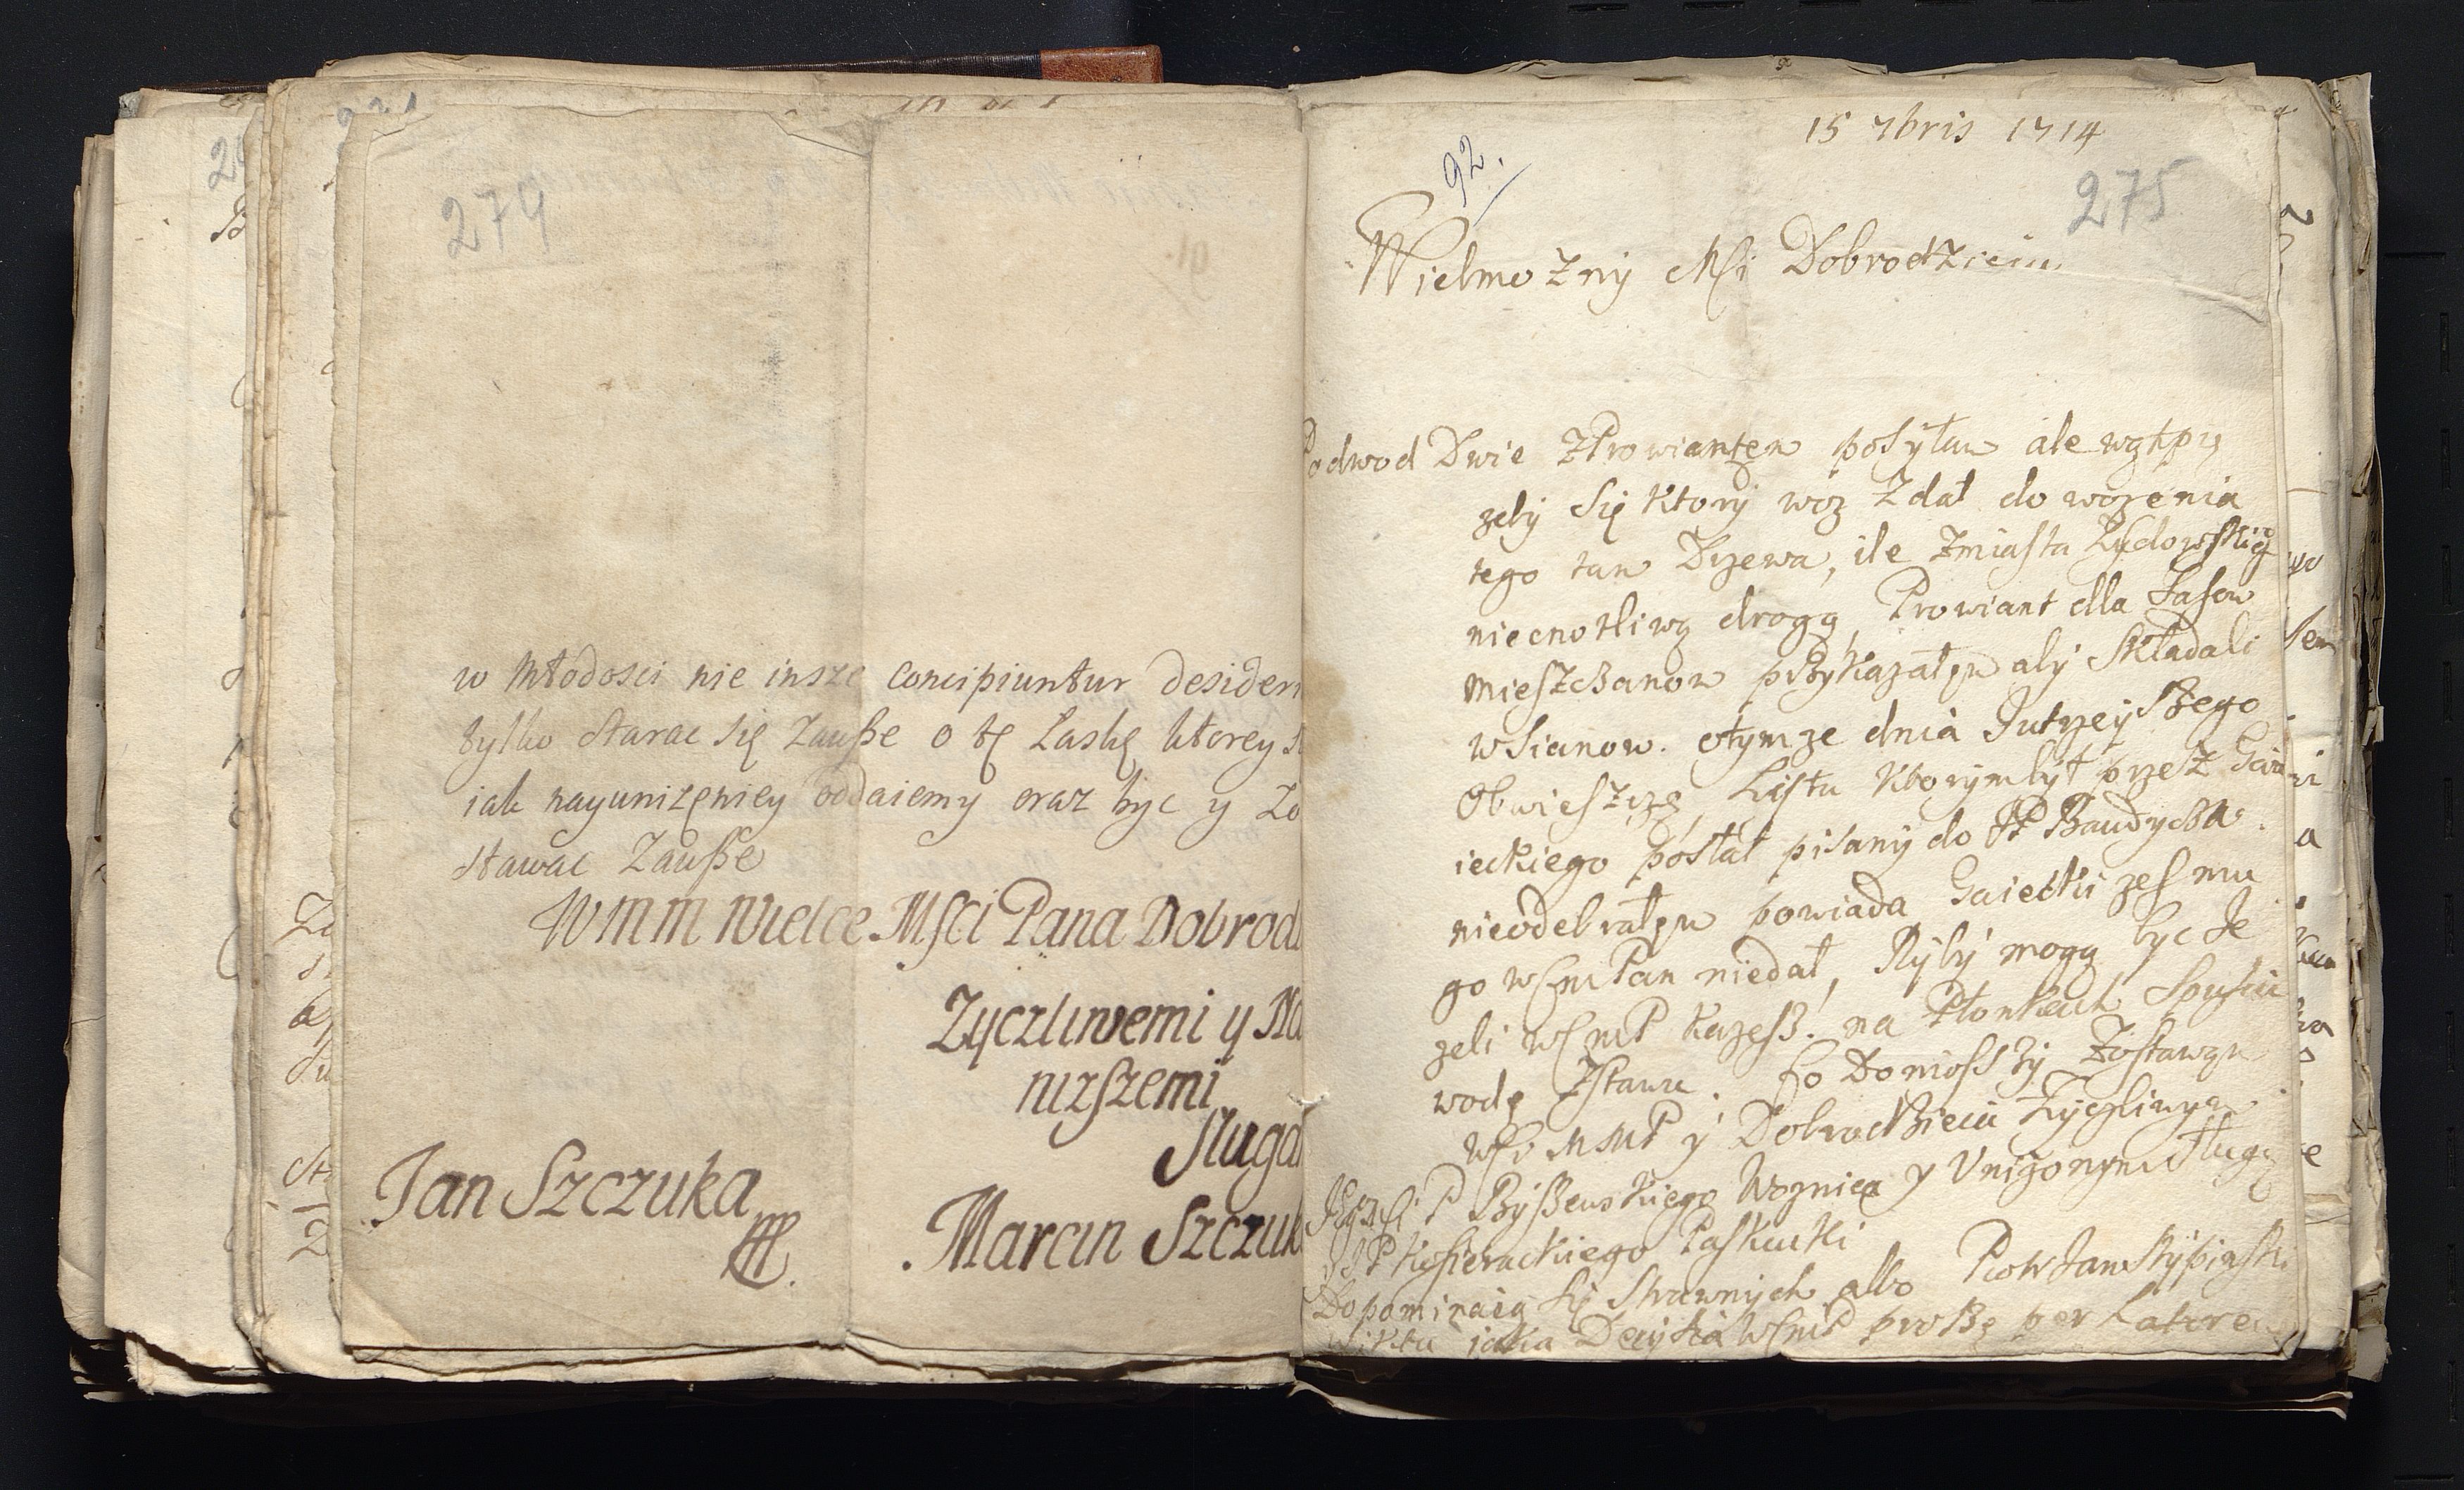 274
w Młodosci nie insze concipiuntur desideri
tylko starac się zauße o tę Łaskę ktorey s
iak nayunizęniey oddaiemy oraz byc y zo
stawac zauße
WMM Wielce Msci Pana Dobrod
Zyczliwemi y Na
nizszemi
Sługa
Jan Szczuka
Marcin Szczuk
15 7bris 1714
92.
275
Wielmozny Msci Dobrodzieiu
Podwod Dwie z Prowiantem posyłam ale wątpię
zeby się ktory woz zdał do wozenia
tego tam Drzewa, ile z miasta Zydowskich
niecnotliwą drogą, Prowiant dla Sasow
mieszczanow przykazałem aby składali
w Sianow. otymze dnia Jutrzeyszego
Obwieszczę, Listu ktorym był przez Gaie
ieckiego posłał pisany do PP
nieodebrałem powiada Gaiecki zes mu
go WSmPan niedał, Ryby mogą byc Je
zeli WSmP kazesz. na Płonkach Spuscic
wodę z stawu. Co Donioszszy zostawam
y Dobrodzieia Zyczliwym
P woznica y Unizonym sługą
Paskucki
Piotr Jan Skypinski
Dopominaią się Strawnych albo
wiktu iaka Decyzia WSmP proszę per Latorem